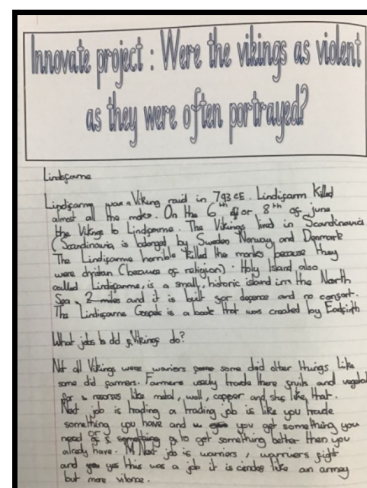 Innovate project : Were the vikings as violent
as they were often portrayed?
Lindisfarne
was a Viking raid in 793 CE. Killed
almost all the monks. On the 6th or 8th of june
the Vikings to Lindisfarne. The Vikings lived in Scandinavia
(Scandinavia is belonged by Sweden Norway and Denmark
The horrible killed the monks because they
were (because of religion). Holy Island also
called Lindisfarne, is a small, historic island in the North
Sea, 2 miles and it is built for and no
The Lindisfarne Gospels is a book that was created by
What jobs did Vikings do?
Not all Vikings were some did other things like
some did farmers. Farmers usually there fruits and
for like metal, wall, and like that.
Next job is trading a trading job is like you
something you have and you get something you
need to get something better then you
have. Next job is fight
and yes this was a job it is like an
but more